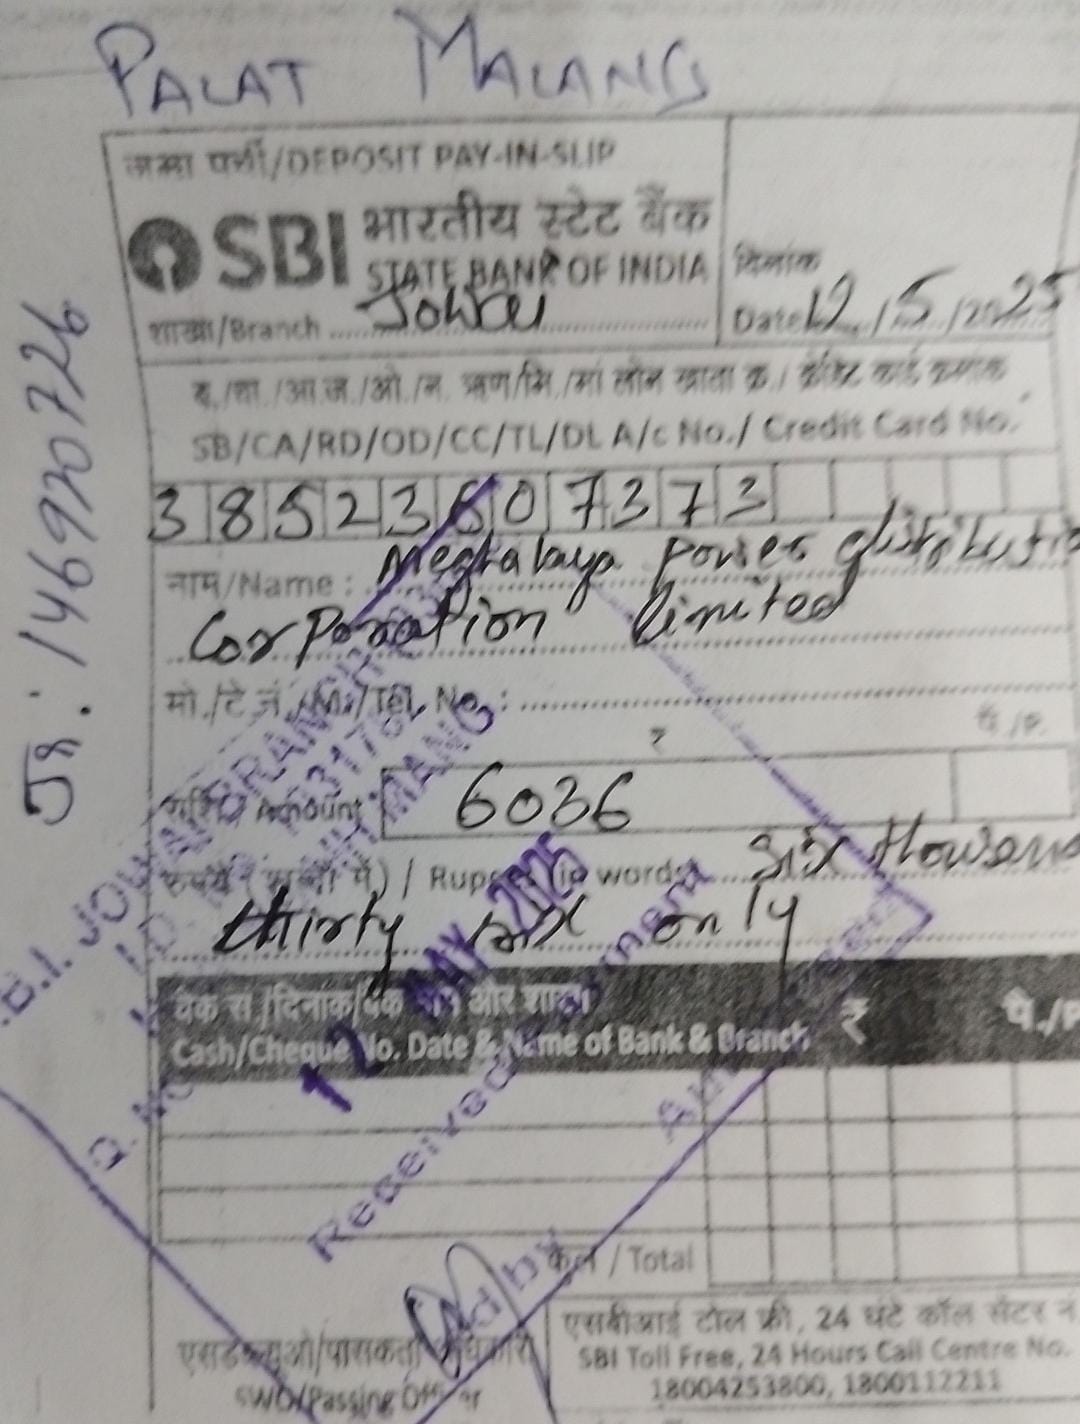 PALAT MALANG
जमा पर्ची/DEPOSIT PAY-IN-SLIP
SBI भारतीय स्टेट बैंक
STATE BANK OF INDIA
शाखा/Branch Jowai
दिनांक
Date 12/5/2025
ब./चा./आ.ज./ओ./न. ऋण/मि./मां लोन खाता क्र./ क्रेडिट कार्ड क्रमांक
SB/CA/RD/OD/CC/TL/DL A/c No./ Credit Card No.
38523607373
नाम/Name : Meghalaya Power distributio
Corporation limited
मो./टे.नं. /Mo/Tel. No. :
₹ पै./P.
राशि/ Amount 6036
रुपये (शब्दों में) / Rupees (in words) Six thousand
thirty six only
Cash/Cheque No. Date & Name of Bank & Branch
₹ पै./P
कुल / Total
SWO/Passing Officer
एसबीआई टोल फ्री, 24 घंटे कॉल सेंटर नं
SBI Toll Free, 24 Hours Call Centre No.
18004253800, 1800112211
Jr.: 146920726
S.B.I. JOWAI BRANCH
12 MAY 2025
Received